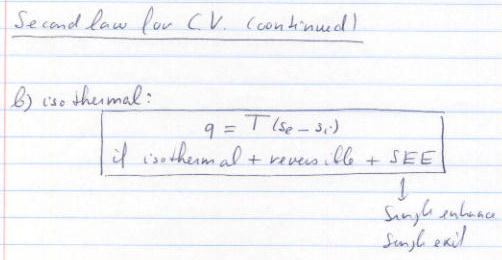 Second law for C.V. (continued)
b) isothermal:
q = T (se - si)
if isothermal + reversible + SEE
↓
Single entrance
Single exit